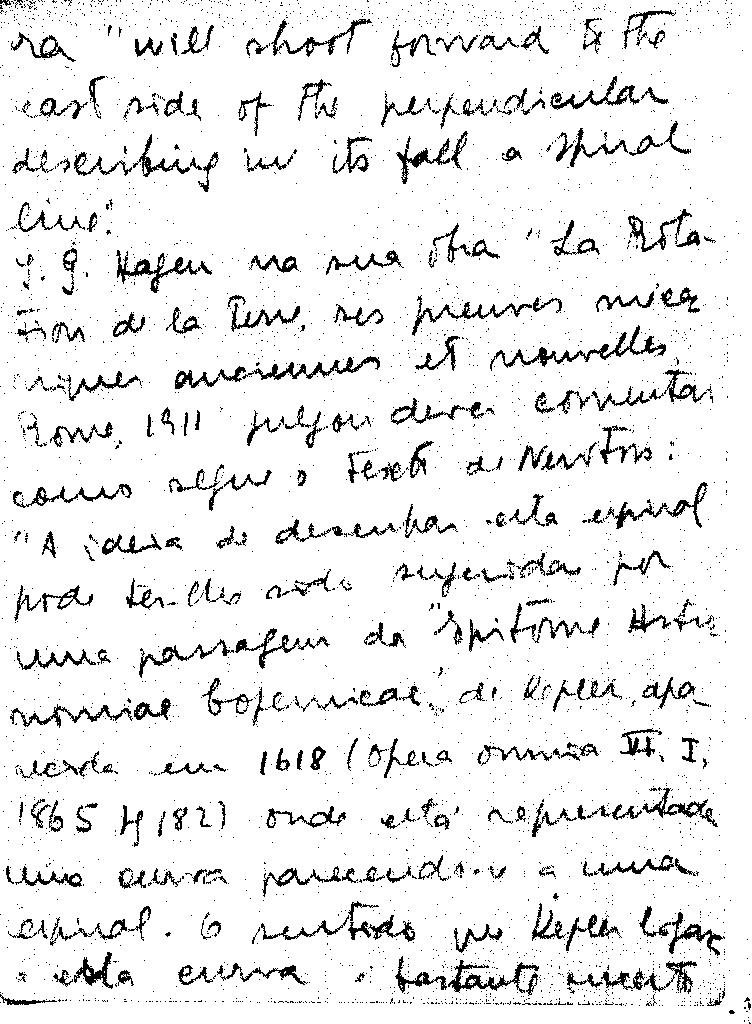 ra "will shoot forward to the
east side of the perpendicular
describing in its fall a spiral
line".
J. G. Hagen na sua obra "La Rota-
tion de la Terre, ses preuves méca-
niques anciennes et nouvelles,
Rome, 1911 julgou dever comentar
como segue o texto de Newton:
"A ideia de desenhar esta espiral
pode ter-lhe sido sugerida por
uma passagem da "Epitome Astro-
nomiae Copernicae", de Kepler, apa-
recida em 1618 (Opera omnia VI, I,
1865 182) onde está representada
uma curva parecendo-se a uma
espiral. O sentido que Kepler
a esta curva é bastante incerto